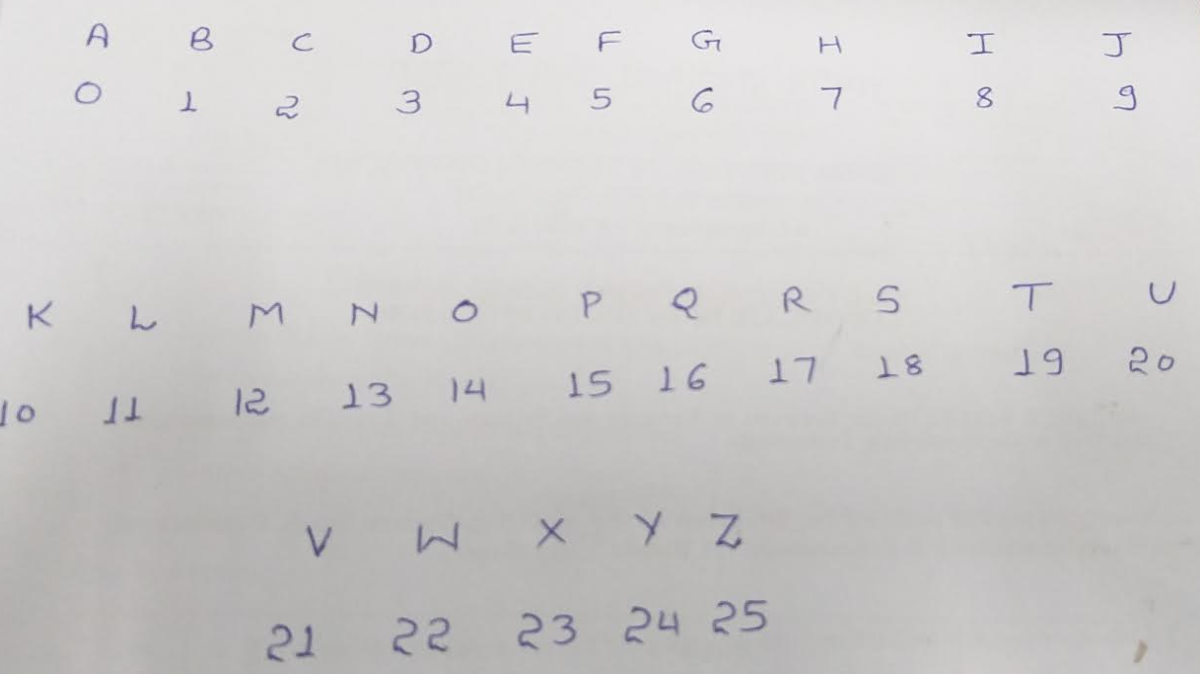 A B C D E F G H I J
0 1 2 3 4 5 6 7 8 9
K L M N O P Q R S T U
10 11 12 13 14 15 16 17 18 19 20
V W X Y Z
21 22 23 24 25